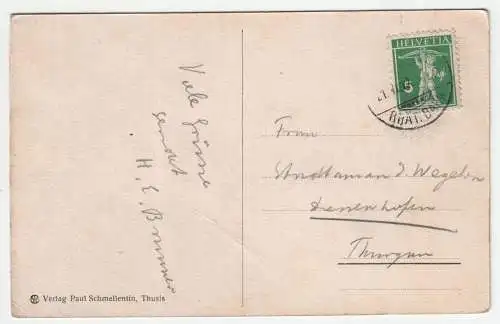 Viele Grüsse
sendet
H. E. Brunner
HELVETIA
5
RHÄT. B
Frau
Stadtaman J. Wegelin
Diessenhofen
Thurgau
Verlag Paul Schmellentin, Thusis